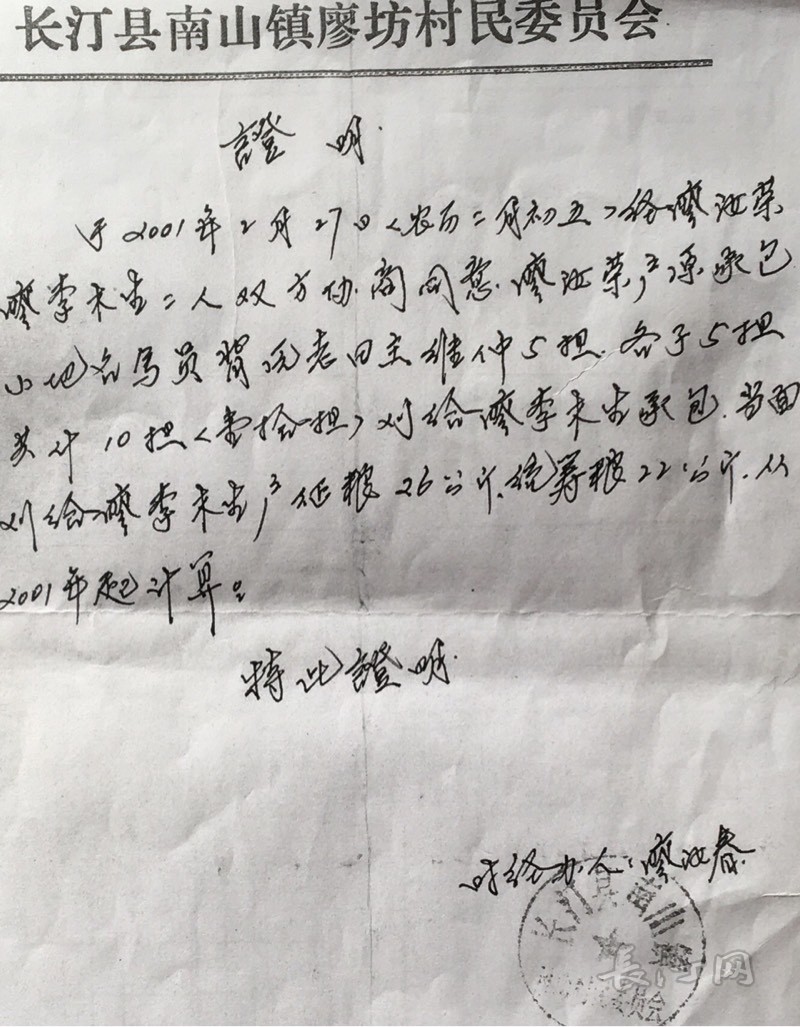 长汀县南山镇廖坊村民委员会
證 明.
于2001年2月27日<农历二月初五>经廖汝荣
廖李木生二人双方协商同意.廖汝荣户原承包
小地名马员背 老田 5担.各子5担
共计10担<壹拾担>划给廖李木生承包.当面
划给廖李木生户征粮26公斤.统筹粮22公斤.从
2001年起计算。
特此證明.
时经办人:廖汝春.
长汀县南山镇
委员会
长汀网